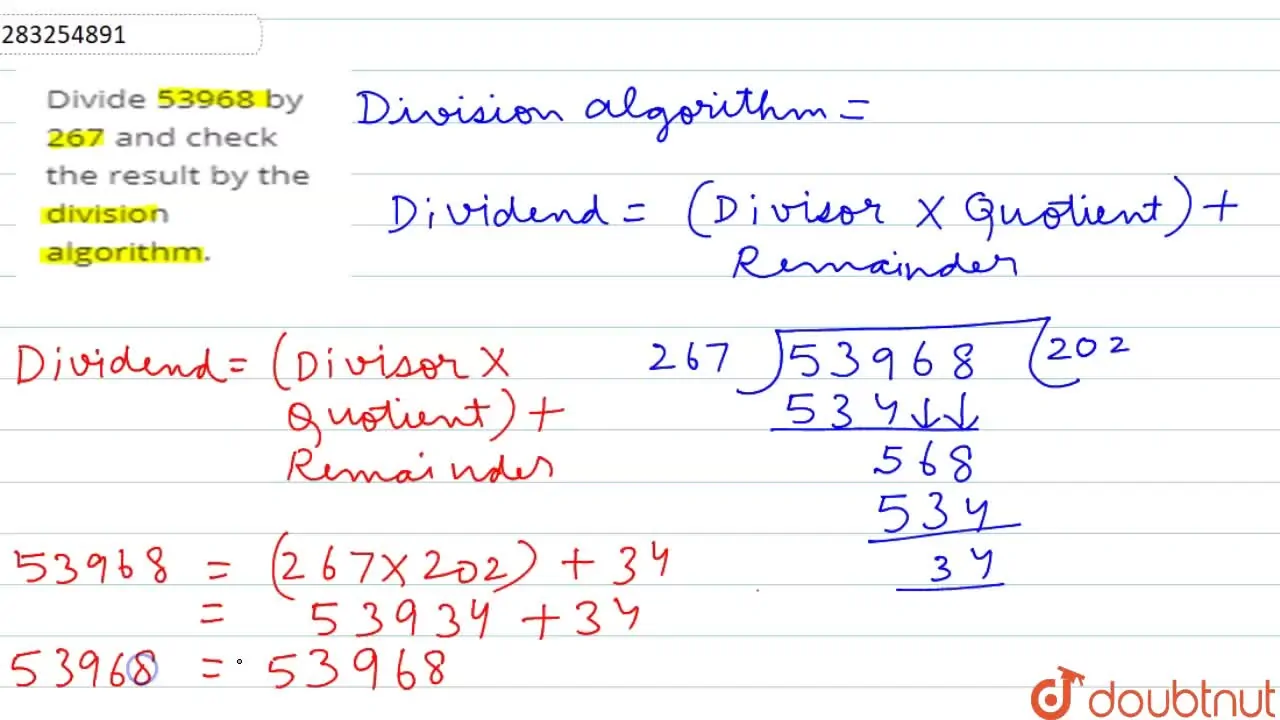 283254891
Divide 53968 by
267 and check
the result by the
division
algorithm.
Division algorithm =
Dividend = (Divisor X Quotient) +
Remainder
Dividend = (Divisor X
Quotient) +
Remainder
53968 = (267 X 202) + 34
= 53934 + 34
53968 = 53968
267 ) 53968 ( 202
534↓↓
568
534
34
doubtnut